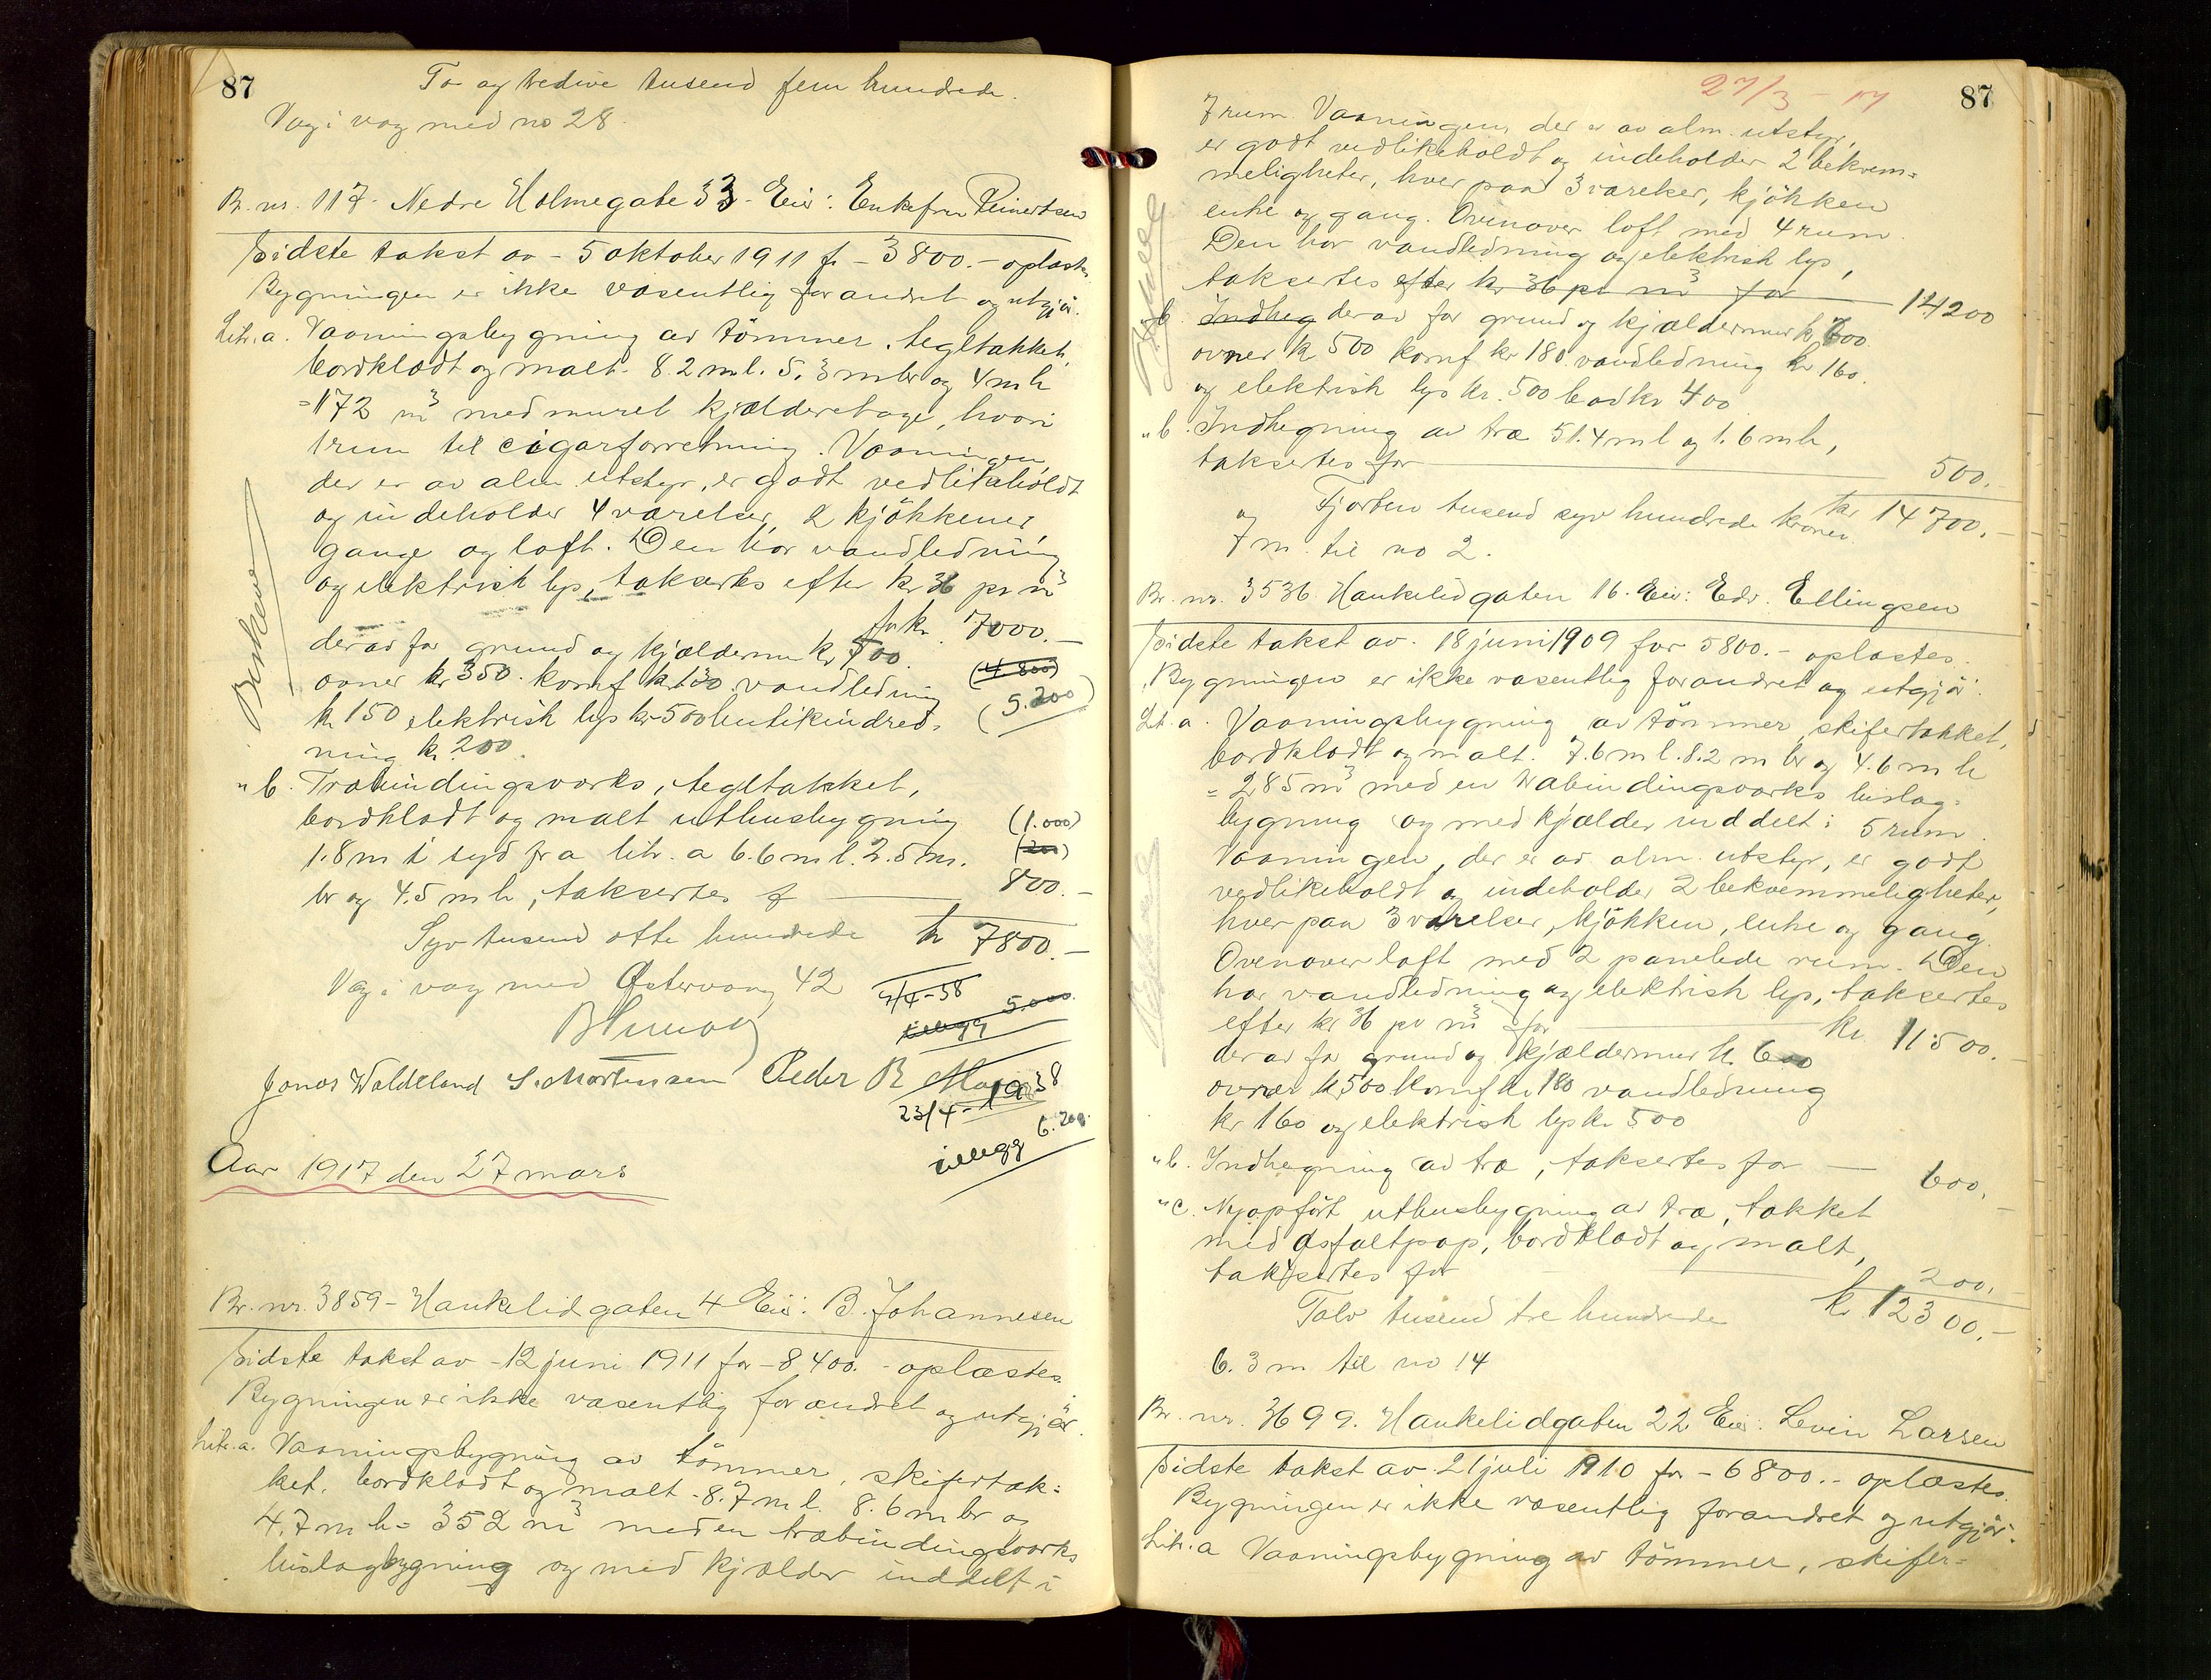 87
To og tredive tusend fem hundrede.
Væg i væg med no 28.
Br. nr. 117 - Nedre Holmegate 33 - Eier: Enkefru Reinertsen
Sidste takst av - 5 oktober 1911 fr - 3800.- oplæstes
Bygningen er ikke væsentlig forandret og utgjør.
Litr. a. Vaaningsbygning av tömmer, tegltækket,
bordklædt og malt. 8.2 m l. 5.3 m br og 4 m h
= 172 m³ med muret kjælderetage, hvori
1 rum til cigarforretning. Vaaningen,
der er av alm. utstyr, er godt vedlikeholdt
og indeholder 4 værelser, 2 kjökkener
gange og loft. Den har vandledning
og elektrisk lys, taksertes efter kr 36 pr m³
for kr. 7000.-
derav for grund og kjældermur kr 700.
(4 800)
ovner kr 350. komf kr 130 vandledning
(5.200)
kr 150 elektrisk lys kr 500 butikindred-
ning kr. 200.
" b. Træbindingsværks, tegltækket,
bordklædt og malt uthusbygning
(1.000)
1.8 m i syd fra litr. a 6.6 m l. 2.5 m.
(200)
br og 4.5 m h, taksertes f
800.-
Syv tusend otte hundrede kr 7800.-
Væg i væg med Østervaag 42
4/4-38
5.000
tillegg
Jonas Waldeland S. Mortensen Peder R
23/4-1938
6.200
tillegg
Aar 1917 den 27 mars
Br. nr. 3859 - Haukelidgaten 4 Eier: B. Johannesen
Sidste takst av - 12 juni 1911 for - 8400.- oplæstes.
Bygningen er ikke væsentlig forandret og utgjør.
Litr. a. Vaaningsbygning av tömmer, skifertæk-
ket, bordklædt og malt - 8.7 m l. 8.6 m br og
4.7 m h = 352 m³ med en træbindingsværks
bislagbygning og med kjælder inddelt i
27/3 - 17
87
7 rum. Vaaningen, der er av alm. utstyr,
er godt vedlikeholdt og indeholder 2 bekvem-
meligheter, hver paa 3 værelser, kjökken
entre og gang. Ovenover loft med 4 rum.
Den har vandledning og elektrisk lys,
taksertes efter kr 36 pr m³ for 14200
" b. Indheg derav for grund og kjældermur kr 700.
ovner kr 500 komf kr 180 vandledning kr 160.
og elektrisk lys kr. 500 bad kr 400
" b. Indhegning av træ 51.4 m l og 1.6 m h,
taksertes for 500.-
kr 14700.-
og Fjorten tusend syv hundrede kroner.
7 m. til no 2.
Br. nr. 3536. Haukelidgaten 16. Eier: Edv. Ellingsen
Sidste takst av. 18 juni 1909 for 5800.- oplæstes.
Bygningen er ikke væsentlig forandret og utgjör.
Litr. a. Vaaningsbygning av tömmer, skifertækket,
bordklædt og malt. 7.6 m l. 8.2 m br og 4.6 m h
= 285 m³ med en træbindingsværks bislag-
bygning og med kjælder inddelt i 5 rum.
Vaaningen, der er av alm. utstyr, er godt
vedlikeholdt og indeholder 2 bekvemmeligheter,
hver paa 3 værelser, kjökken, entre og gang.
Ovenover loft med 2 panelede rum. Den
har vandledning og elektrisk lys, taksertes
efter kr 36 pr m³ for kr. 11500.-
derav for grund og kjældermur kr. 600
ovner kr 500 komf kr 180 vandledning
kr 160 og elektrisk lys kr 500
" b. Indhegning av træ, taksertes for 600.-
" c. Nyopført uthusbygning av træ, tækket
med asfaltpap, bordklædt og malt,
taksertes for 200.-
Tolv tusend tre hundrede kr 12300.-
6.3 m til no 14
Br. nr. 3699. Haukelidgaten 22 Eier: Levin Larsen
Sidste takst av. 21 juli 1910 for - 6800.- oplæstes.
Bygningen er ikke væsentlig forandret og utgjör.
Litr. a Vaaningsbygning av tömmer, skifer-